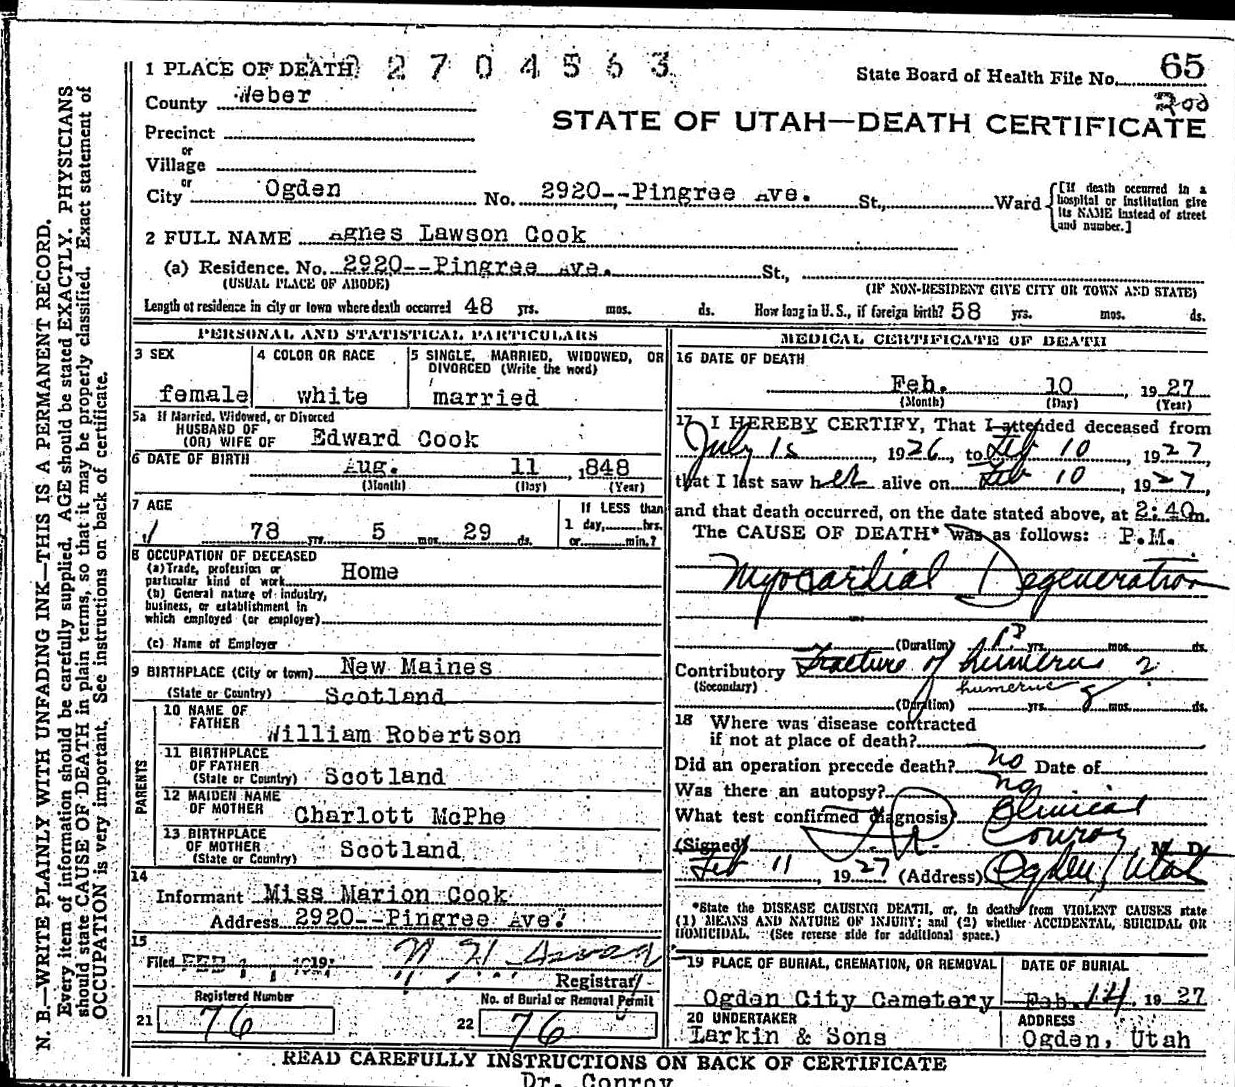 1 PLACE OF DEATH 2 7 0 4 5 6 3
State Board of Health File No. 65
County Weber
200
STATE OF UTAH—DEATH CERTIFICATE
Precinct
or
Village
or
City Ogden No. 2920--Pingree Ave. St., Ward
[If death occurred in a hospital or institution give its NAME instead of street and number.]
2 FULL NAME Agnes Lawson Cook
(a) Residence. No. 2920--Pingree Ave. St.,
(USUAL PLACE OF ABODE) (IF NON-RESIDENT GIVE CITY OR TOWN AND STATE)
Length of residence in city or town where death occurred 48 yrs. mos. ds. How long in U. S., if foreign birth? 58 yrs. mos. ds.
PERSONAL AND STATISTICAL PARTICULARS
3 SEX
female
4 COLOR OR RACE
white
5 SINGLE, MARRIED, WIDOWED, OR DIVORCED (Write the word)
married
5a If Married, Widowed, or Divorced
HUSBAND OF
(OR) WIFE OF Edward Cook
6 DATE OF BIRTH Aug. 11 ,848
(Month) (Day) (Year)
7 AGE
78 yrs. 5 mos. 29 ds.
If LESS than
1 day, hrs.
or min.?
8 OCCUPATION OF DECEASED
(a) Trade, profession or
particular kind of work Home
(b) General nature of industry,
business, or establishment in
which employed (or employer)
(c) Name of Employer
9 BIRTHPLACE (City or town) New Maines
(State or Country) Scotland
PARENTS
10 NAME OF
FATHER William Robertson
11 BIRTHPLACE
OF FATHER
(State or Country) Scotland
12 MAIDEN NAME
OF MOTHER Charlott McPhe
13 BIRTHPLACE
OF MOTHER
(State or Country) Scotland
14
Informant Miss Marion Cook
Address 2920--Pingree Ave.
15
Filed FEB 19
Registrar
21 Registered Number
76
22 No. of Burial or Removal Permit
76
MEDICAL CERTIFICATE OF DEATH
16 DATE OF DEATH
Feb. 10 1927
(Month) (Day) (Year)
17 I HEREBY CERTIFY, That I attended deceased from
July 15, 1926, to Feb 10, 1927,
that I last saw her alive on Feb 10, 1927,
and that death occurred, on the date stated above, at 2:40 m.
The CAUSE OF DEATH* was as follows: P.M.
Myocardial Degeneration
(Duration) yrs. mos. ds.
Contributory Fracture of humerus 2
(Secondary) humerus
(Duration) yrs. 8 mos. ds.
18 Where was disease contracted
if not at place of death?
Did an operation precede death? no Date of
Was there an autopsy? no
What test confirmed diagnosis? Clinical
(Signed) Conroy M. D.
Feb 11, 1927 (Address) Ogden, Utah
*State the DISEASE CAUSING DEATH, or, in deaths from VIOLENT CAUSES state
(1) MEANS AND NATURE OF INJURY; and (2) whether ACCIDENTAL, SUICIDAL OR
HOMICIDAL. (See reverse side for additional space.)
19 PLACE OF BURIAL, CREMATION, OR REMOVAL
Ogden City Cemetery
DATE OF BURIAL
Feb. 14, 1927
20 UNDERTAKER
Larkin & Sons
ADDRESS
Ogden, Utah
READ CAREFULLY INSTRUCTIONS ON BACK OF CERTIFICATE
Dr. Conroy
N. B.—WRITE PLAINLY WITH UNFADING INK—THIS IS A PERMANENT RECORD.
Every item of information should be carefully supplied. AGE should be stated EXACTLY. PHYSICIANS
should state CAUSE OF DEATH in plain terms, so that it may be properly classified. Exact statement of
OCCUPATION is very important. See instructions on back of certificate.